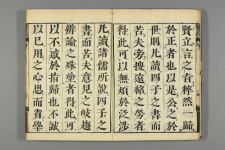 賢立言之旨粹然一歸
於正者也以是公之於
世則凡讀四子之書而
苦夫旁搜遠緝之勞者
得此可以無煩於泛涉
凡讀諸儒所説四子之
書而苦夫意見之岐趨
辯論之殊塗者得此可
以不惑於指歸也不寧
以已用之心愚而省學